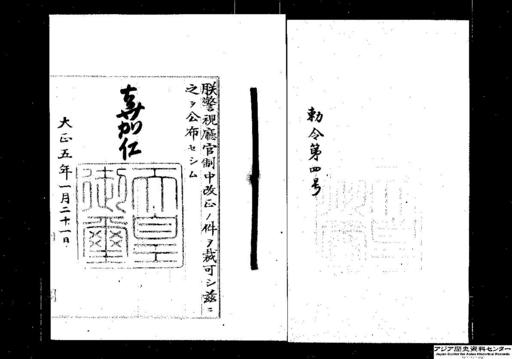 勅令第四号
朕警視廳官制中改正ノ件ヲ裁可シ茲ニ
之ヲ公布セシム
嘉仁
天皇
御璽
大正五年一月二十一日
アジア歴史資料センター
Japan Center for Asian Historical Records